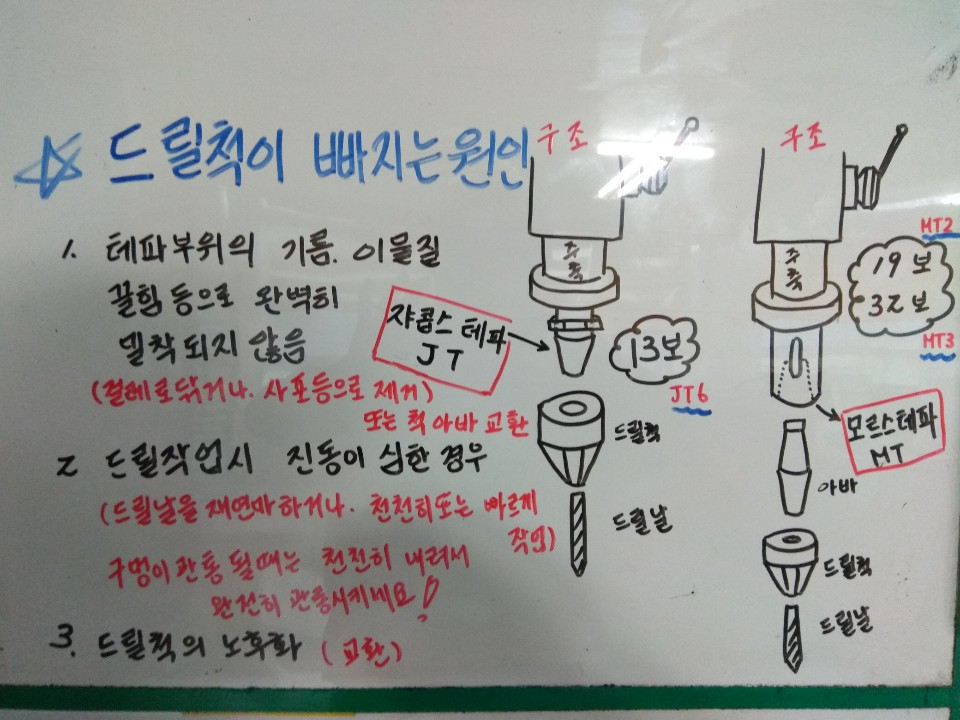 ☆ 드릴척이 빠지는원인
1. 테파부위의 기름. 이물질
끌힘등으로 완벽히
밀착되지 않음
(걸레로닦거나. 사포등으로 제거)
또는 척 아바 교환
2 드릴작업시 진동이 심한 경우
(드릴날을 재연마하거나. 천천히또는 빠르게
작업)
구멍이 관통 될때는 천천히 내려서
완전히 관통시키세요!
3. 드릴척의 노후화 (교환)
구조
주축
쟈콥스 테파
JT
13보
JT6
드릴척
드릴날
구조
주축
MT2
19보
32보
MT3
모르스테파
MT
아바
드릴척
드릴날